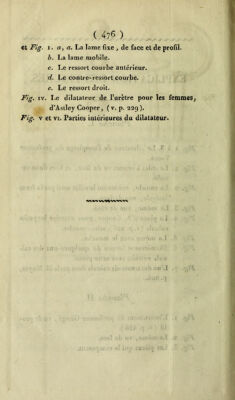 ( 476 )
et Fig. I. a, a. La lame fixe, de face et de profil.
b. La lame mobile.
c. Le ressort courbe antérieur.
d. Le contre-ressort courbe.
e. Le ressort droit.
Fig. IV. Le dilatateur de l'urètre pour les femmes,
d'Astley Cooper, (v. p. 229).
Fig. V et VI. Parties intérieures du dilatateur.